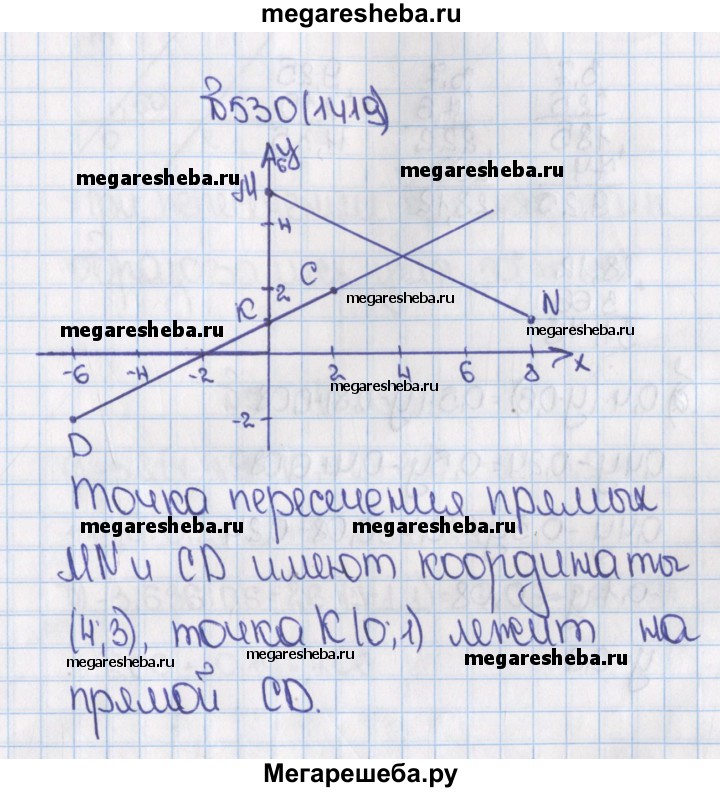 megaresheba.ru
В530(1419)
6 y
megaresheba.ru
megaresheba.ru
M
4
C
2
megaresheba.ru
K
N
megaresheba.ru
megaresheba.ru
-6 -4 -2 2 4 6 8 x
megaresheba.ru
-2
D
Точка пересечения прямых
megaresheba.ru megaresheba.ru
MN и CD имеют координаты
(4;3), точка K(0;1) лежит на
megaresheba.ru megaresheba.ru megaresheba.ru
прямой CD.
Мегарешеба.ру